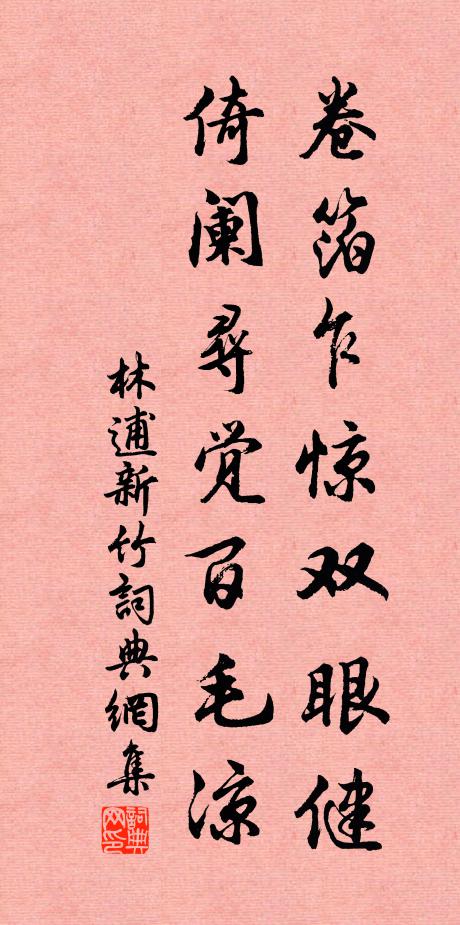 卷箔乍惊双眼健
倚阑寻觉百毛凉
林逋新竹詞典網集
詞典网印